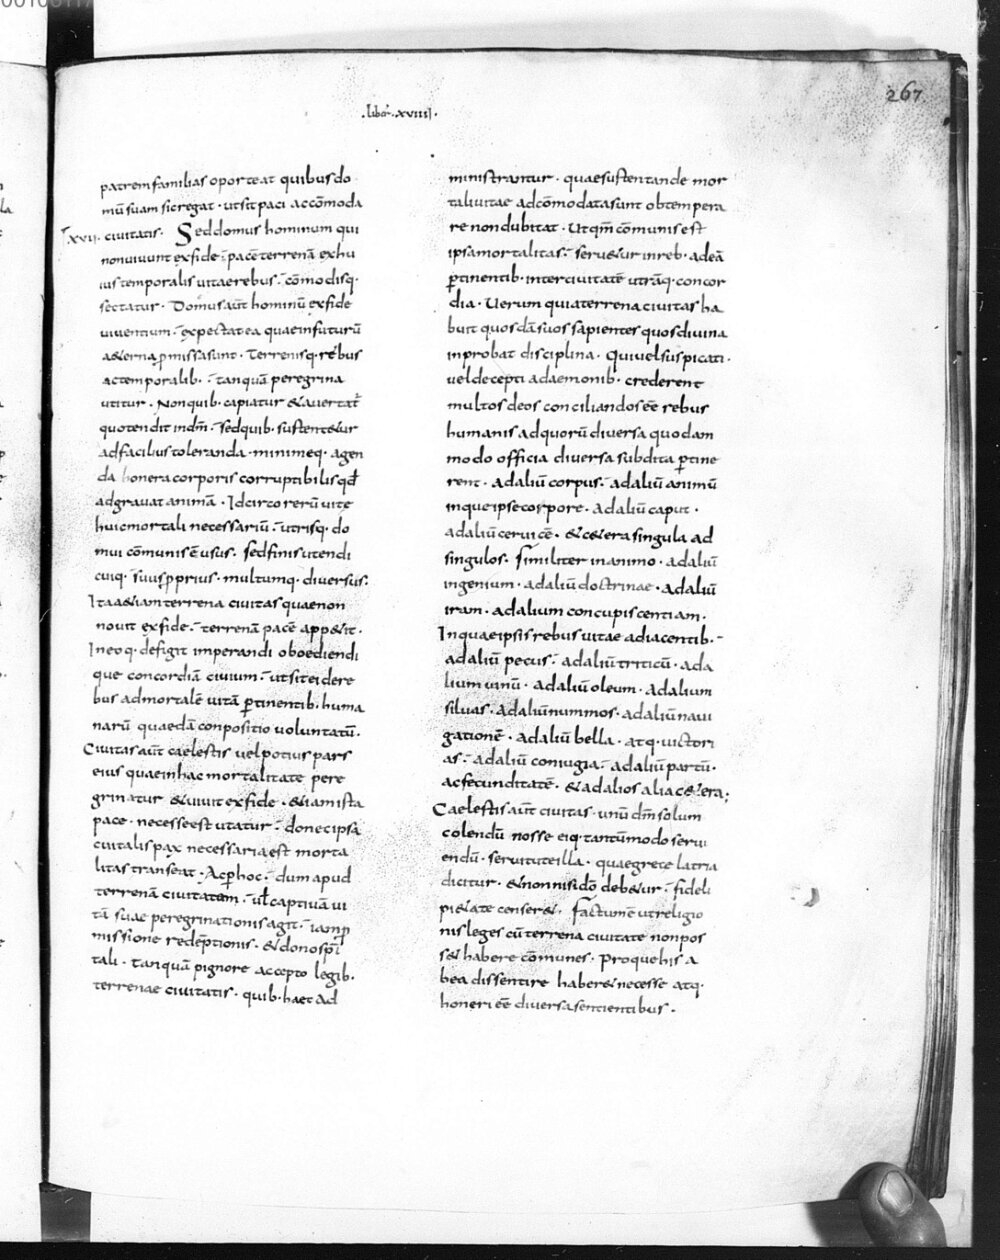 267
.liber.xviiii.
patrem familias oporteat quibus do
mū suam sic regat · ut sit paci accōmoda
xvii. civitatis. Sed domus hominum qui
non vivunt ex fide · pacē terrenā ex hu
ius temporalis vitae rebus · cōmodisq·
sectatur · Domus aūt hominū ex fide
viventium · expectat ea quae in futurū
aeterna ꝓmissa sunt · Terrenisq· rebus
ac temporalib· tanquā peregrina
utitur · Non quib· capiatur & avertat̄
quo tendit in dm̄ · sed quib· sustent&ur
ad facilius toleranda · minimeq· agen
da honera corporis corruptibilis qd̄
adgravat animā · Idcirco rerū vite
huic mortali necessariū · utrisq· do
mui cōmunis ē usus · sed finis utendi
cuiq· suus ꝓprius · multumq· diversus·
Ita &iam terrena civitas quae non
novit ex fide · terrenā pacē app&it ·
In eoq· defigit imperandi oboediendi
que concordiā civium · ut sit ei dere
bus ad mortalē vitā ꝑtinentib· huma
narū quaedā conpositio voluntatū ·
Civitas aūt caelestis vel potius pars
eius quae in hac mortalitate pere
grinatur & vivit ex fide · &iam ista
pace · necesse est utatur · donec ipsa
cui talis pax necessaria est morta
litas transeat · Ac ꝑ hoc · dum apud
terrenā civitatem · vel captivam vi
tā suae peregrinationis agit · iam ꝓ
missione redēptionis · & dono spī
tali · tanquā pignore accepto legib·
terrenae civitatis · quib· haec ad
ministrantur · quae sustentande mor
tali vitae adcōmodata sunt obtempera
re non dubitat · Ut qm̄ cōmunis est
ipsa mortalitas · serv&ur in reb· ad eā
ꝑtinentib· inter civitatē utrāq· concor
dia · Verum quia terrena civitas ha
buit quosdā suos sapientes quos divina
inprobat disciplina · Qui vel suspicati ·
vel decepti a daemonib· crederent
multos deos conciliandos eē rebus
humanis adquorū diversa quodam
modo officia diversa subdita ꝑtine
rent · ad aliū corpus · ad aliū animū
inque ipse corpore · ad aliū caput ·
ad aliū cervicē · & c&era singula ad
singulos · Similiter in animo · ad aliū
ingenium · ad aliū doctrinae · ad aliū
iram · ad alium concupiscentiam ·
In quae ipsis rebus vitae adiacentib· ·
ad aliū pecus · ad aliū triticū · ad a
lium vinū · ad aliū oleum · ad alium
silvas · ad aliū nummos · ad aliū navi
gationē · ad aliū bella · atq· victori
as · ad aliū coniugia · ad aliū partū ·
ac fecunditatē · & ad alios alia c&era;
Caelestis aūt civitas · unū dm̄ solum
colendū nosse eiq· tantūmodo servi
endū · servitute illa · quae grece latria
dicitur · & non nisi dō deb&ur · fideli
pi&ate censer& · Factum ē ut religio
nis leges cū terrena civitate non pos
s& habere cōmunes · Proque his a
bea dissentire haber& necesse atq·
honeri eē diversa sentientibus ·